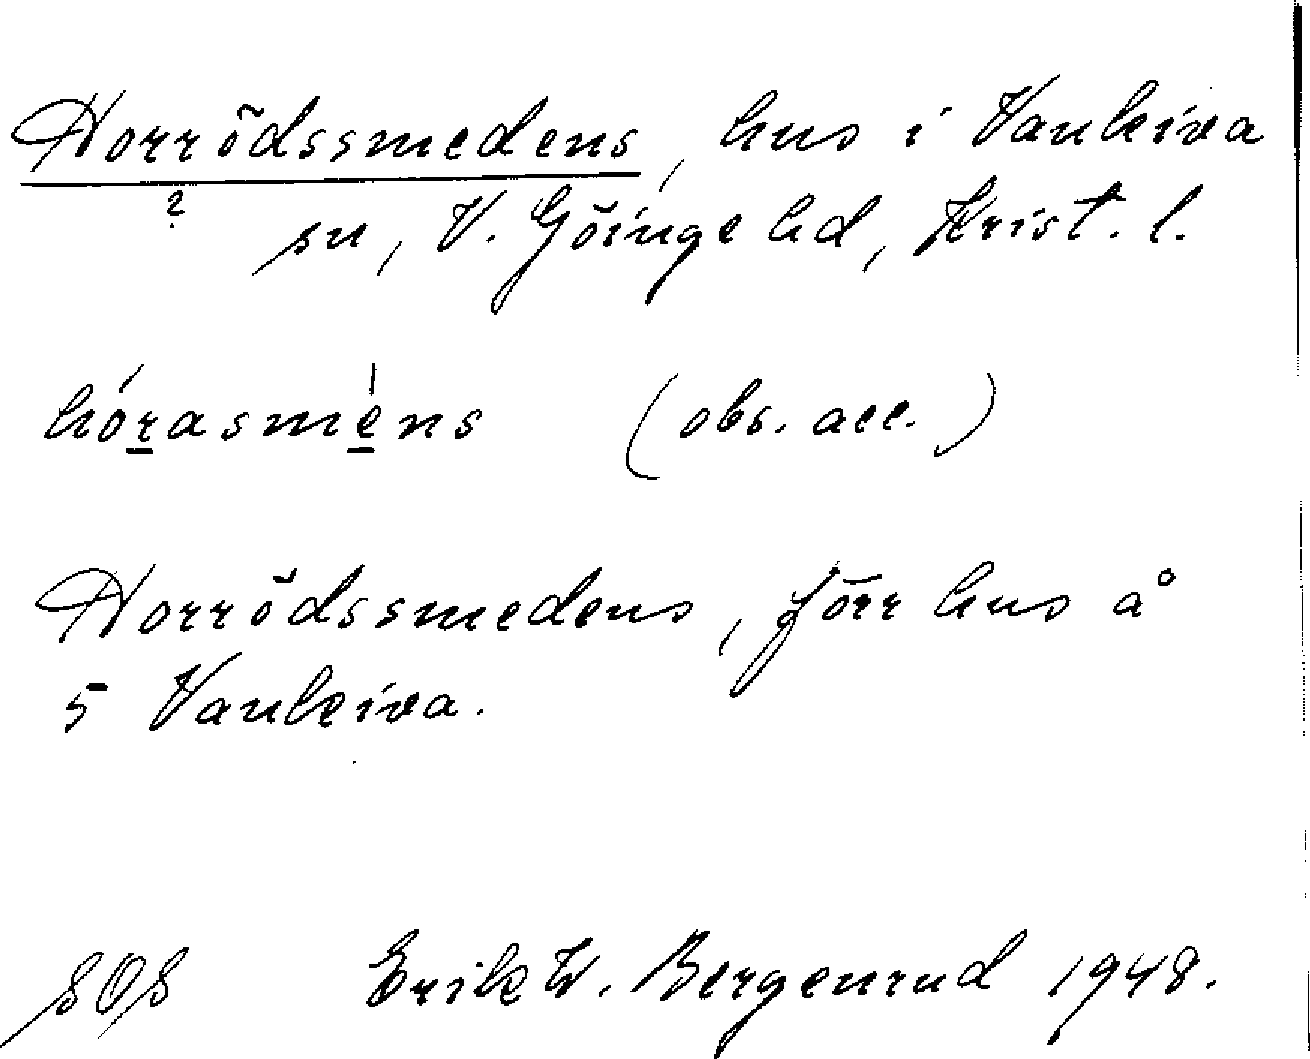 Horrödssmedens, hus i Vankiva
?
sn, V. Göinge hd, Krist. l.
hórasmèns (obs. acc.)
Horrödssmedens, förr hus å
5 Vankiva.
SOS Erik W. Bergenrud 1948.